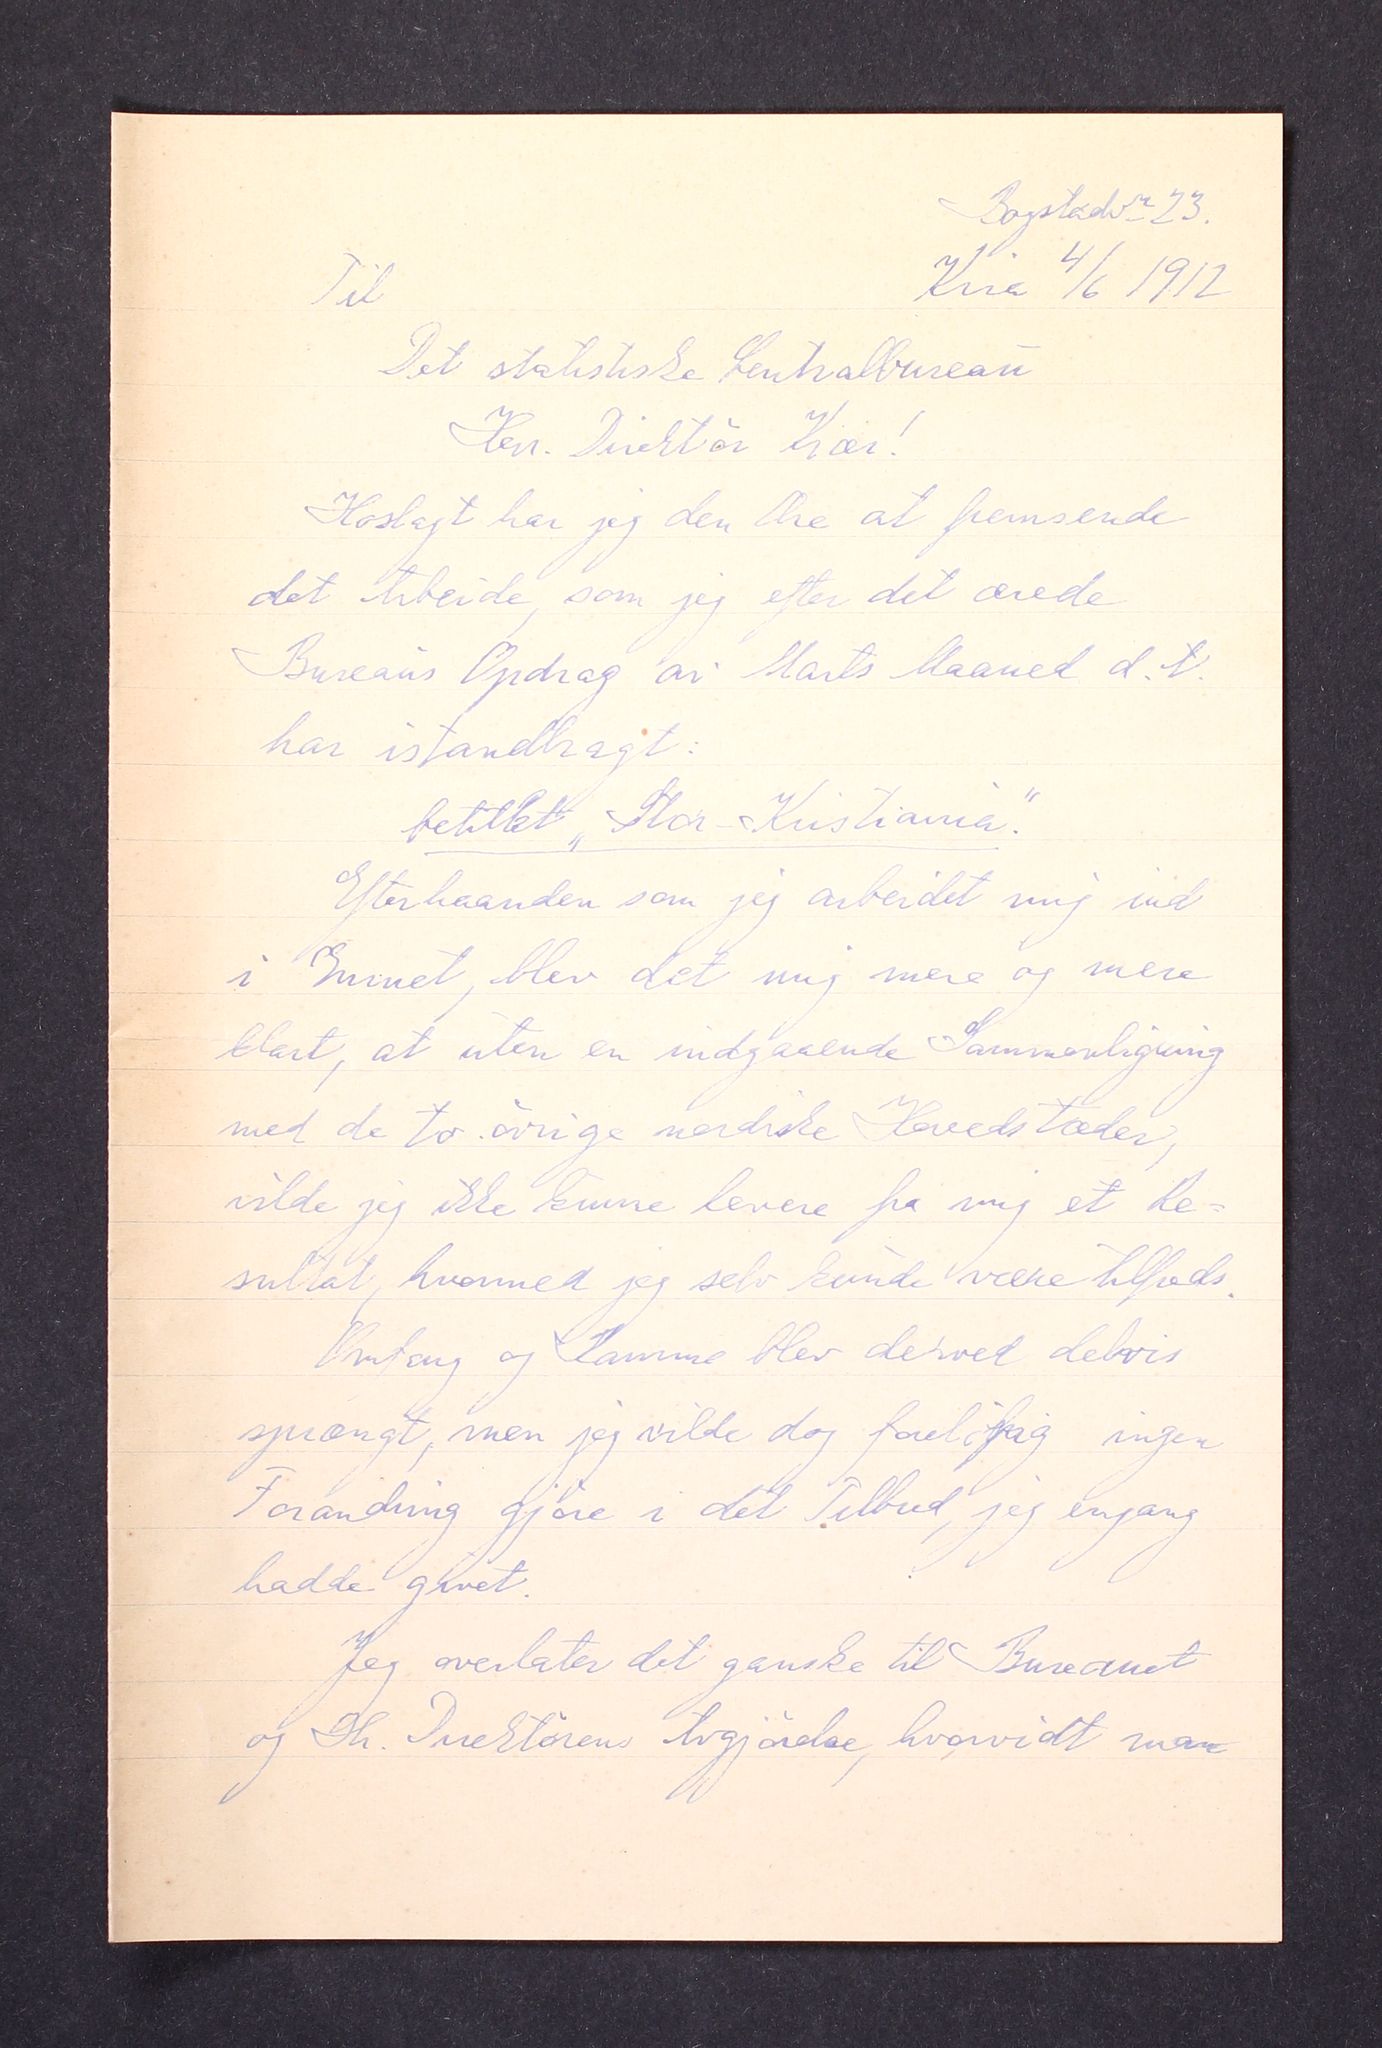 Bogstadvn 23.
Kria 4/6 1912
Til
Det statistiske Centralbureau
Herr. Direktör Kiær!
Hoslagt har jeg den Ære at fremsende
det Arbeide, som jeg efter det ærede
Bureaus Opdrag av Marts Maaned d. A.
har istandbragt:
betitlet „Stor-Kristiania".
Efterhaanden som jeg arbeidet mig ind
i Emnet, blev det mig mere og mere
klart, at uten en indgaaende Sammenligning
med de to övrige nordiske Hovedstæder,
vilde jeg ikke kunne levere fra mig et Re=
sultat, hvormed jeg selv kunde være tilfreds.
Omfang og Ramme blev derved delvis
sprængt, men jeg vilde dog forelöbig ingen
Forandring gjöre i det Tilbud, jeg engang
hadde givet.
Jeg overlater det ganske til Bureauet
og Hr. Direktörens Avgjörelse, hvorvidt man